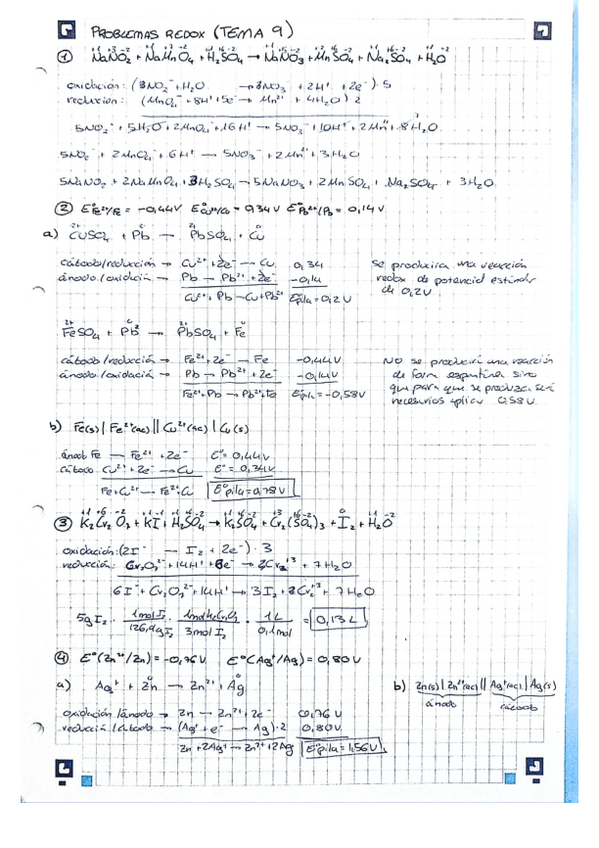 PROBLEMAS REDOX (TEMA 9)
① NaNO₂ + NaMnO₄ + H₂SO₄ → NaNO₃ + MnSO₄ + Na₂SO₄ + H₂O
oxidación: (NO₂⁻ + H₂O → NO₃⁻ + 2H⁺ + 2e⁻) · 5
reduccion: (MnO₄⁻ + 8H⁺ + 5e⁻ → Mn²⁺ + 4H₂O) 2
5NO₂⁻ + 5H₂O + 2MnO₄⁻ + 16H⁺ → 5NO₃⁻ + 10H⁺ + 2Mn²⁺ + 8H₂O
5NO₂⁻ + 2MnO₄⁻ + 6H⁺ → 5NO₃⁻ + 2Mn²⁺ + 3H₂O
5NaNO₂ + 2NaMnO₄ + 3H₂SO₄ → 5NaNO₃ + 2MnSO₄ + Na₂SO₄ + 3H₂O
② E°Fe²⁺/Fe = -0,44V E°Cu²⁺/Cu = 0,34V E°Pb²⁺/Pb = 0,14V
a) CuSO₄ + Pb → PbSO₄ + Cu
cátodo/reducción → Cu²⁺ + 2e⁻ → Cu 0,34
ánodo/oxidación → Pb → Pb²⁺ + 2e⁻ -0,14
Cu²⁺ + Pb → Cu + Pb²⁺ E°pila = 0,2V
Se producira una reacción
redox de potencial estándar
de 0,2V
FeSO₄ + Pb → PbSO₄ + Fe
cátodo/reducción → Fe²⁺ + 2e⁻ → Fe -0,44V
ánodo/oxidación → Pb → Pb²⁺ + 2e⁻ -0,14V
Fe²⁺ + Pb → Pb²⁺ + Fe E°pila = -0,58V
No se producirá una reacción
de forma espontanea sino
que para que se produzca será
necesarios aplicar 0,58V.
b) Fe(s) | Fe²⁺(ac) || Cu²⁺(ac) | Cu(s)
ánodo Fe → Fe²⁺ + 2e⁻ E° = 0,44V
cátodo Cu²⁺ + 2e⁻ → Cu E° = 0,34V
Fe + Cu²⁺ → Fe²⁺ + Cu E°pila = 0,78V
③ K₂Cr₂O₇ + KI + H₂SO₄ → K₂SO₄ + Cr₂(SO₄)₃ + I₂ + H₂O
oxidación: (2I⁻ → I₂ + 2e⁻) · 3
reducción: Cr₂O₇²⁻ + 14H⁺ + 6e⁻ → 2Cr⁺³ + 7H₂O
6I⁻ + Cr₂O₇²⁻ + 14H⁺ → 3I₂ + 2Cr⁺³ + 7H₂O
5g I₂ · 1mol I₂ / 126,9g I₂ · 1mol K₂Cr₂O₇ / 3mol I₂ · 1L / 0,1mol = 0,13L
④ E°(Zn²⁺/Zn) = -0,76V E°(Ag⁺/Ag) = 0,80V
a) Ag⁺ + Zn → Zn²⁺ + Ag
b) Zn(s) | Zn²⁺(ac) || Ag⁺(ac) | Ag(s)
ánodo cátodo
oxidación/ánodo → Zn → Zn²⁺ + 2e⁻ 0,76V
reducción/cátodo → (Ag⁺ + e⁻ → Ag) · 2 0,80V
Zn + 2Ag⁺ → Zn²⁺ + 2Ag E°pila = 1,56V